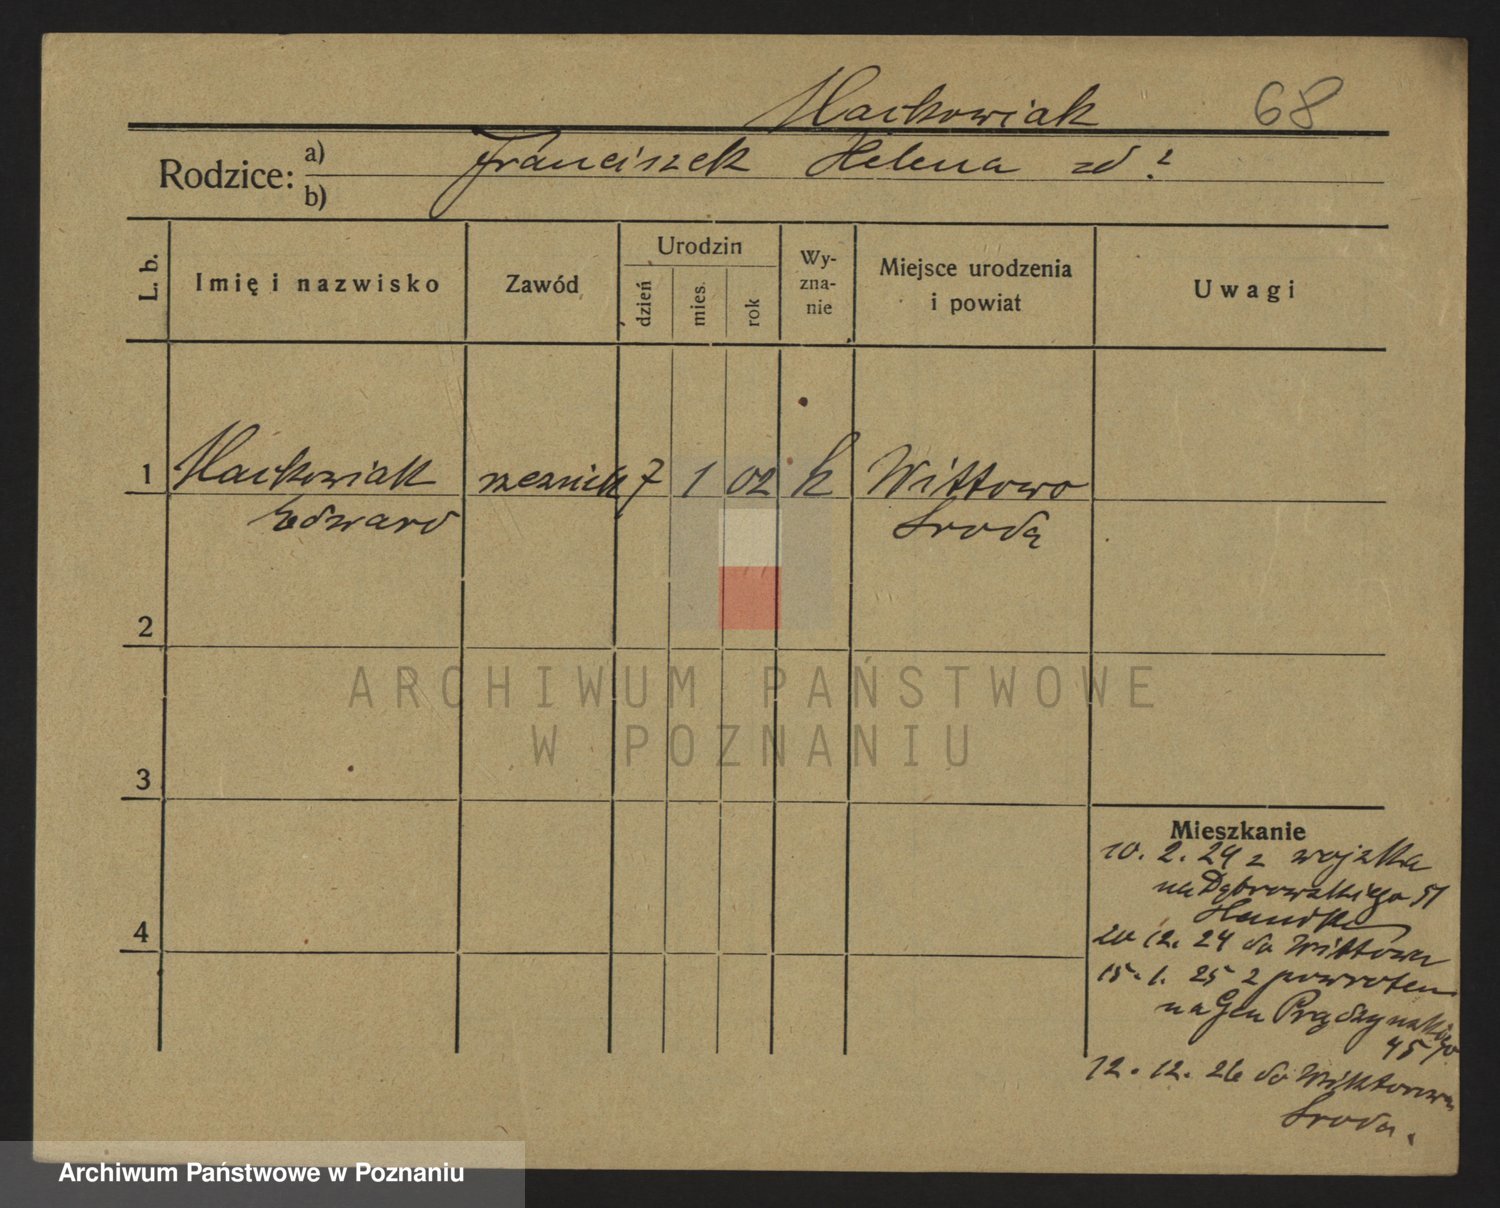 Maćkowiak 68
Rodzice: a) Franciszek Helena zd ?
b)
L. b.
Imię i nazwisko
Zawód
Urodzin
dzień
mies.
rok
Wy-
zna-
nie
Miejsce urodzenia
i powiat
Uwagi
1 Maćkowiak rzeźnik 7 1 02 k Wittowo
Edward Środa
2
3
4
ARCHIWUM PAŃSTWOWE
W POZNANIU
Mieszkanie
10. 2. 24 z wojska
na Dąbrowskiego 51
20 12. 24 do Wittowa
15. 1. 25 z powrotem
na Gen Prądzyńskiego
45
12. 12. 26 do
Środa.
Archiwum Państwowe w Poznaniu